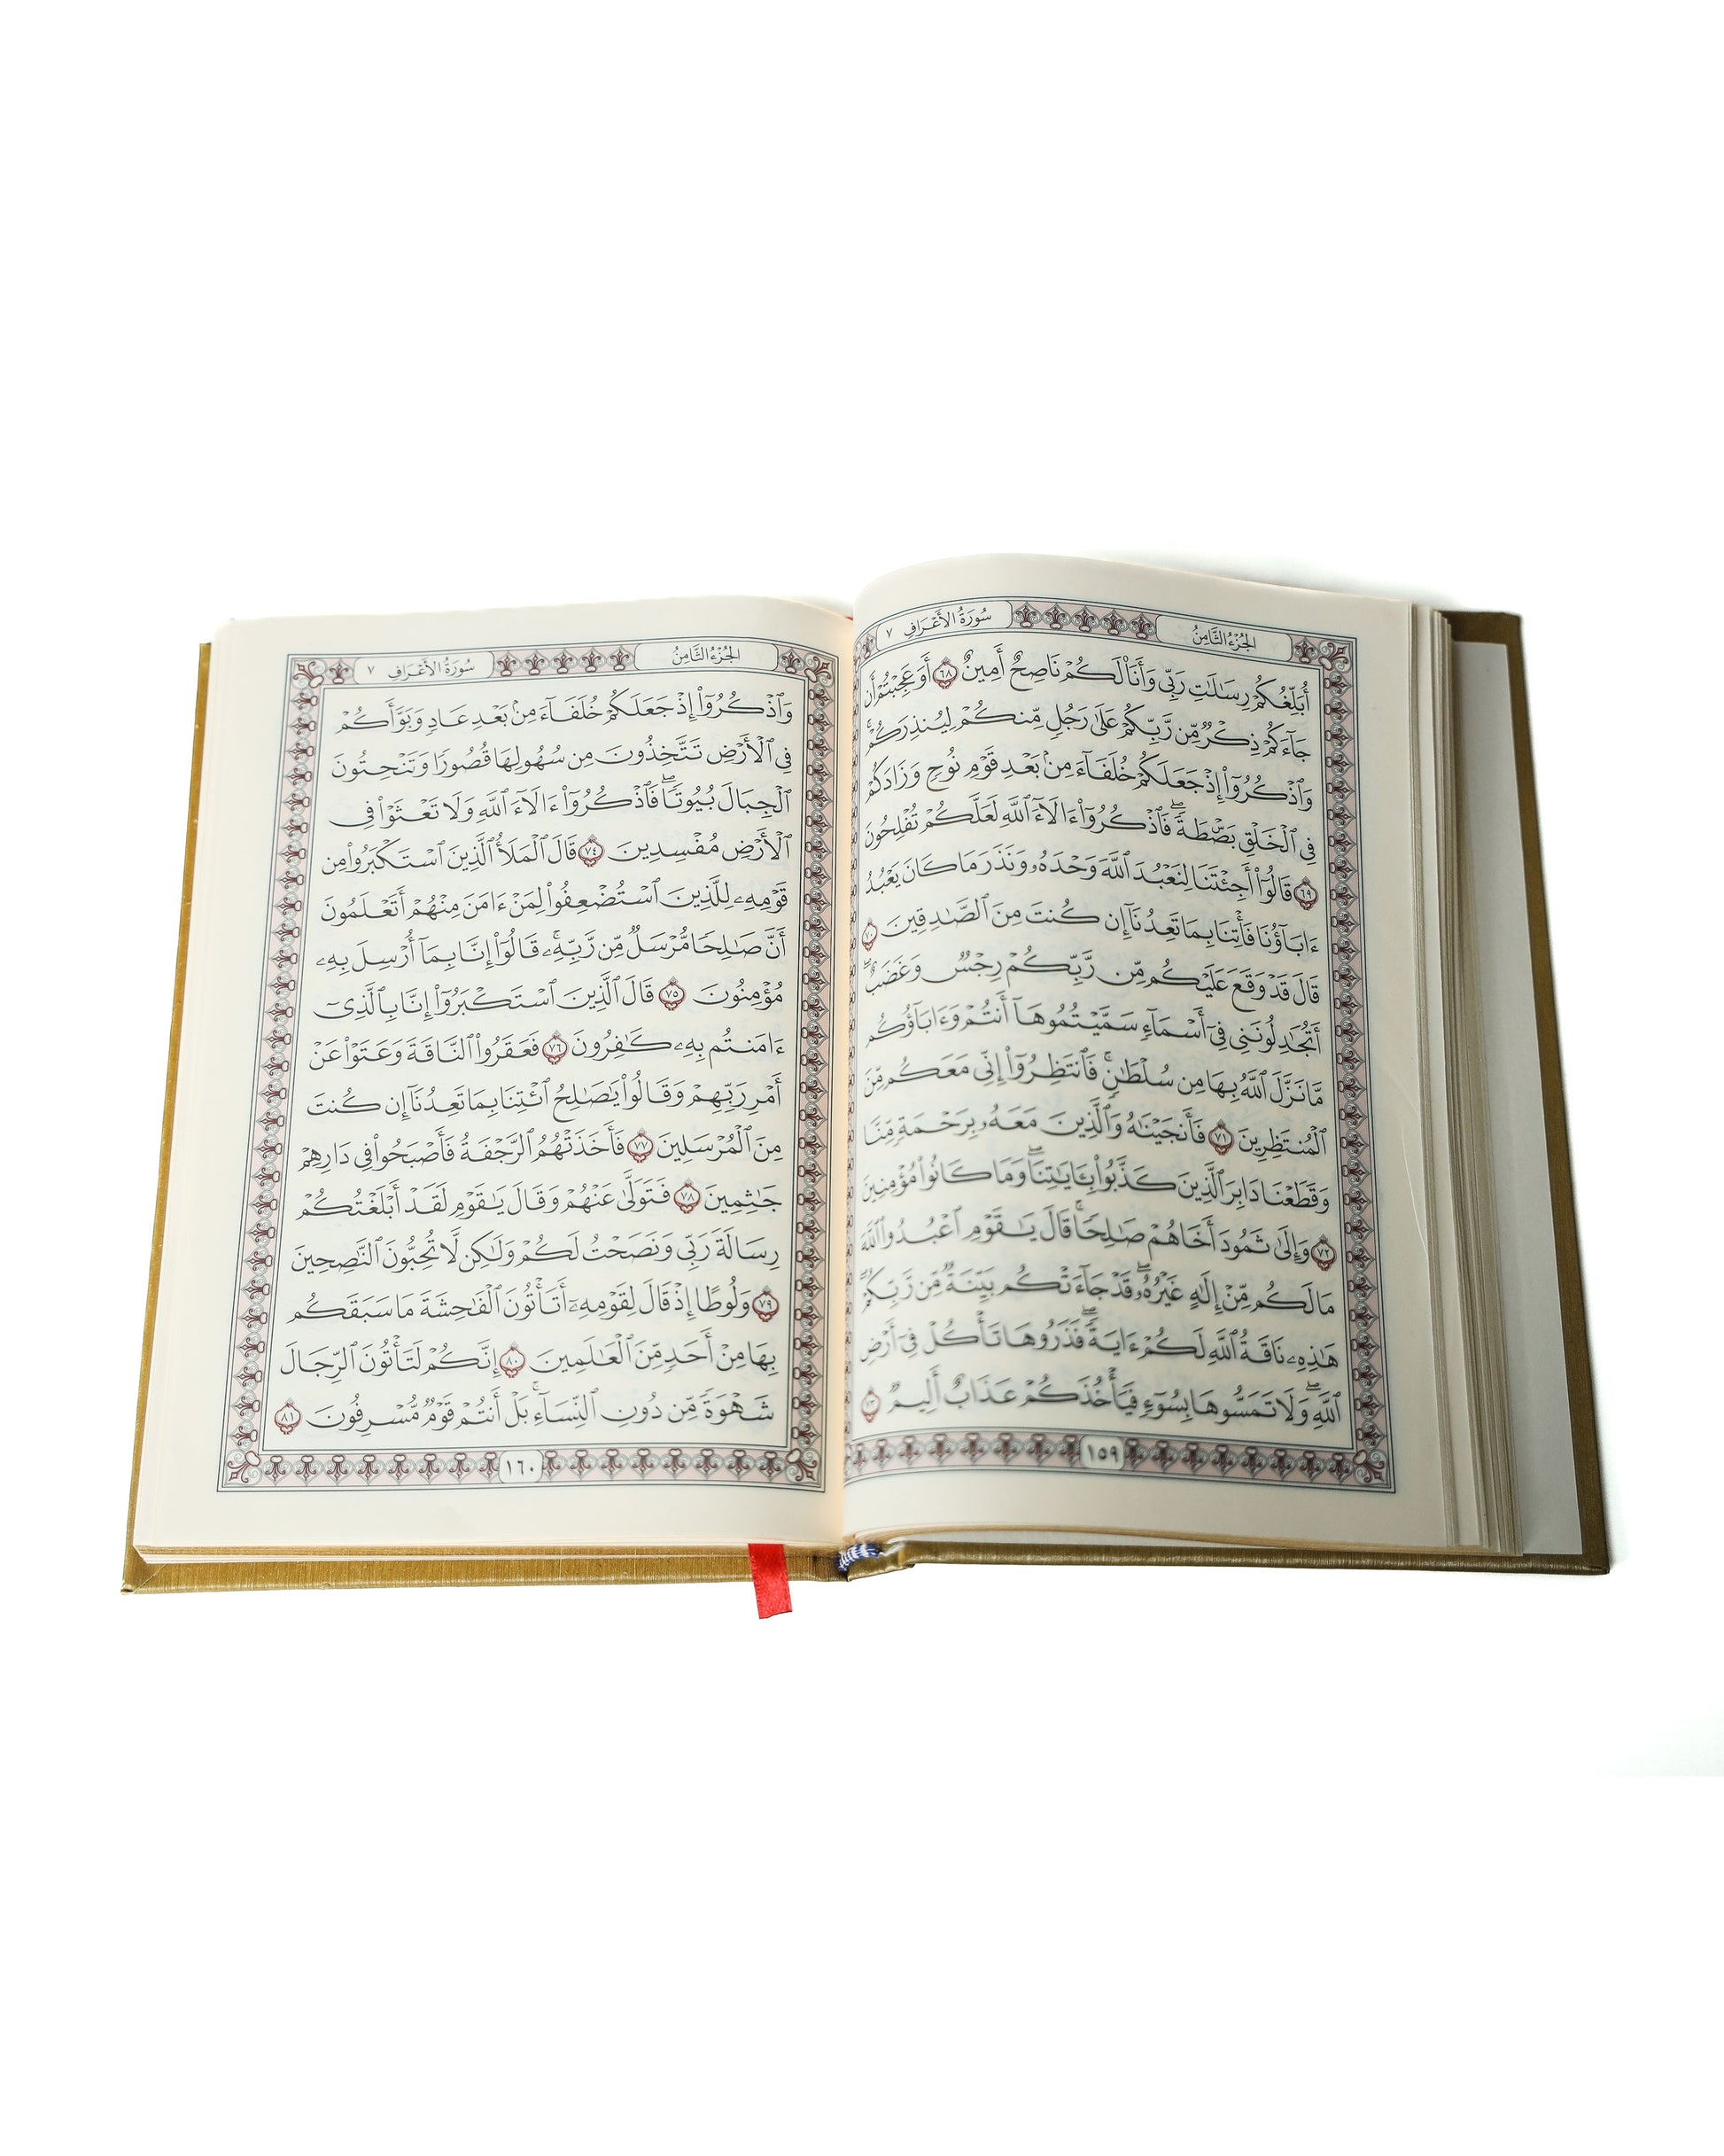 الجُزْءُ الثَّامِنُ
سُورَةُ الأَعْرَافِ ٧
أُبَلِّغُكُمْ رِسَٰلَٰتِ رَبِّى وَأَنَا۠ لَكُمْ نَاصِحٌ أَمِينٌ ٦٨ أَوَعَجِبْتُمْ أَن
جَآءَكُمْ ذِكْرٌ مِّن رَّبِّكُمْ عَلَىٰ رَجُلٍ مِّنكُمْ لِيُنذِرَكُمْ ۚ
وَٱذْكُرُوٓا۟ إِذْ جَعَلَكُمْ خُلَفَآءَ مِنۢ بَعْدِ قَوْمِ نُوحٍ وَزَادَكُمْ
فِى ٱلْخَلْقِ بَصْۜطَةً ۖ فَٱذْكُرُوٓا۟ ءَالَآءَ ٱللَّهِ لَعَلَّكُمْ تُفْلِحُونَ
٦٩ قَالُوٓا۟ أَجِئْتَنَا لِنَعْبُدَ ٱللَّهَ وَحْدَهُۥ وَنَذَرَ مَا كَانَ يَعْبُدُ
ءَابَآؤُنَا فَأْتِنَا بِمَا تَعِدُنَآ إِن كُنتَ مِنَ ٱلصَّٰدِقِينَ ٧٠
قَالَ قَدْ وَقَعَ عَلَيْكُم مِّن رَّبِّكُمْ رِجْسٌ وَغَضَبٌ ۖ
أَتُجَٰدِلُونَنِى فِىٓ أَسْمَآءٍ سَمَّيْتُمُوهَآ أَنتُمْ وَءَابَآؤُكُم
مَّا نَزَّلَ ٱللَّهُ بِهَا مِن سُلْطَٰنٍ ۚ فَٱنتَظِرُوٓا۟ إِنِّى مَعَكُم مِّنَ
ٱلْمُنتَظِرِينَ ٧١ فَأَنجَيْنَٰهُ وَٱلَّذِينَ مَعَهُۥ بِرَحْمَةٍ مِّنَّا
وَقَطَعْنَا دَابِرَ ٱلَّذِينَ كَذَّبُوا۟ بِـَٔايَٰتِنَا ۖ وَمَا كَانُوا۟ مُؤْمِنِينَ
٧٢ وَإِلَىٰ ثَمُودَ أَخَاهُمْ صَٰلِحًا ۗ قَالَ يَٰقَوْمِ ٱعْبُدُوا۟ ٱللَّهَ
مَا لَكُم مِّنْ إِلَٰهٍ غَيْرُهُۥ ۖ قَدْ جَآءَتْكُم بَيِّنَةٌ مِّن رَّبِّكُمْ ۖ
هَٰذِهِۦ نَاقَةُ ٱللَّهِ لَكُمْ ءَايَةً ۖ فَذَرُوهَا تَأْكُلْ فِىٓ أَرْضِ
ٱللَّهِ ۖ وَلَا تَمَسُّوهَا بِسُوٓءٍ فَيَأْخُذَكُمْ عَذَابٌ أَلِيمٌ ٧٣
١٥٩
الجُزْءُ الثَّامِنُ
سُورَةُ الأَعْرَافِ ٧
وَٱذْكُرُوٓا۟ إِذْ جَعَلَكُمْ خُلَفَآءَ مِنۢ بَعْدِ عَادٍ وَبَوَّأَكُمْ
فِى ٱلْأَرْضِ تَتَّخِذُونَ مِن سُهُولِهَا قُصُورًا وَتَنْحِتُونَ
ٱلْجِبَالَ بُيُوتًا ۖ فَٱذْكُرُوٓا۟ ءَالَآءَ ٱللَّهِ وَلَا تَعْثَوْا۟ فِى
ٱلْأَرْضِ مُفْسِدِينَ ٧٤ قَالَ ٱلْمَلَأُ ٱلَّذِينَ ٱسْتَكْبَرُوا۟ مِن
قَوْمِهِۦ لِلَّذِينَ ٱسْتُضْعِفُوا۟ لِمَنْ ءَامَنَ مِنْهُمْ أَتَعْلَمُونَ
أَنَّ صَٰلِحًا مُّرْسَلٌ مِّن رَّبِّهِۦ ۚ قَالُوٓا۟ إِنَّا بِمَآ أُرْسِلَ بِهِۦ
مُؤْمِنُونَ ٧٥ قَالَ ٱلَّذِينَ ٱسْتَكْبَرُوٓا۟ إِنَّا بِٱلَّذِىٓ
ءَامَنتُم بِهِۦ كَٰفِرُونَ ٧٦ فَعَقَرُوا۟ ٱلنَّاقَةَ وَعَتَوْا۟ عَنْ
أَمْرِ رَبِّهِمْ وَقَالُوا۟ يَٰصَٰلِحُ ٱئْتِنَا بِمَا تَعِدُنَآ إِن كُنتَ
مِنَ ٱلْمُرْسَلِينَ ٧٧ فَأَخَذَتْهُمُ ٱلرَّجْفَةُ فَأَصْبَحُوا۟ فِى دَارِهِمْ
جَٰثِمِينَ ٧٨ فَتَوَلَّىٰ عَنْهُمْ وَقَالَ يَٰقَوْمِ لَقَدْ أَبْلَغْتُكُمْ
رِسَالَةَ رَبِّى وَنَصَحْتُ لَكُمْ وَلَٰكِن لَّا تُحِبُّونَ ٱلنَّٰصِحِينَ
٧٩ وَلُوطًا إِذْ قَالَ لِقَوْمِهِۦٓ أَتَأْتُونَ ٱلْفَٰحِشَةَ مَا سَبَقَكُم
بِهَا مِنْ أَحَدٍ مِّنَ ٱلْعَٰلَمِينَ ٨٠ إِنَّكُمْ لَتَأْتُونَ ٱلرِّجَالَ
شَهْوَةً مِّن دُونِ ٱلنِّسَآءِ ۚ بَلْ أَنتُمْ قَوْمٌ مُّسْرِفُونَ ٨١
١٦٠